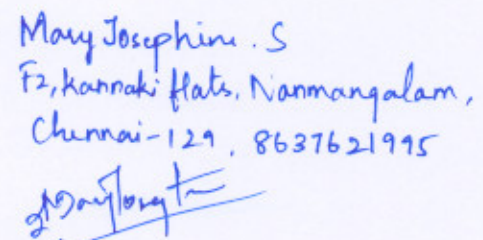 Mary Josephine. S
F2, Kannaki flats, Nanmangalam,
Chennai-129, 8637621995